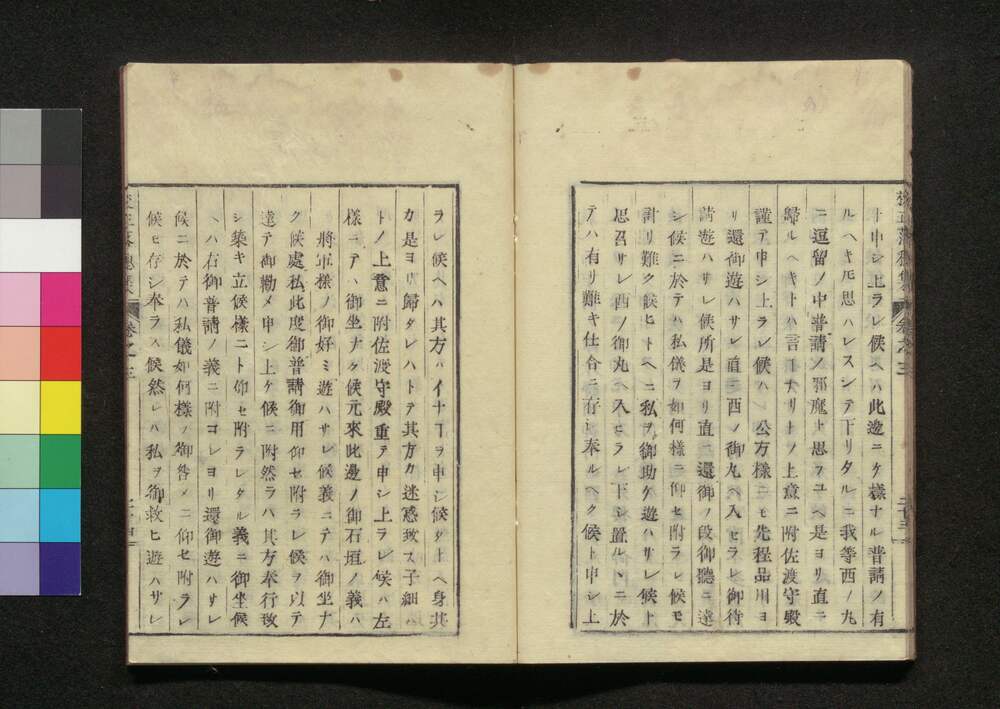 校正落穂集 巻之三
申シ上ラレ候ヘハ此邊ニケ樣ナル普請ノ有
ルヘキ𪜈思ハレスンテ下リタルニ我等西ノ丸
ニ逗留ノ中普請ノ邪魔ト思フユヘ是ヨリ直ニ
歸ルヘキトハ言コナリトノ上意ニ附佐渡守殿
謹ア申シ上ラレ候ハ公方樣ニモ先程品川ヨ
リ還御遊ハサレ直ニ西ノ御丸ヘ入セラレ御待
請遊ハサレ候所是ヨリ直ニ還御ノ段御聽ニ達
シ候ニ於テハ私儀ヲ如何樣ニ仰セ附ラレ候モ
計リ難ク候ヒトヘニ私ヲ御助ケ遊ハサレ候ト
思召サレ西ノ御丸ヘ入ヒラレ下シ置ルヽニ於
テハ有リ難キ仕合ニ存シ奉ルヘク候ト申シ上
ラレ候ヘハ其方ハイナヿヲ申シ候タトヘ身共
カ是ヨリ歸タレハトテ其方カ迷惑致ス子細ハ
トノ上意ニ附佐渡守殿重テ申シ上ラレ候ハ左
樣ニテハ御坐ナク候元來此邊ノ御石垣ノ義ハ
將軍樣ノ御好ミ遊ハサレ候義ニテハ御坐ナ
ク候處私此度御普請御用仰セ附ラレ候ヲ以テ
達テ御勸メ申シ上ケ候ニ附然ラハ其方奉行致
シ築キ立候樣ニト仰セ附ラレタル義ニ御坐候
ヘハ右御普請ノ義ニ附コレヨリ還御遊ハサレ
候ニ於テハ私儀如何樣ノ御咎メニ仰セ附ラレ
候ヒ存シ奉ラス候然レハ私ヲ御救ヒ遊ハサレ
校正落穂集 巻之三